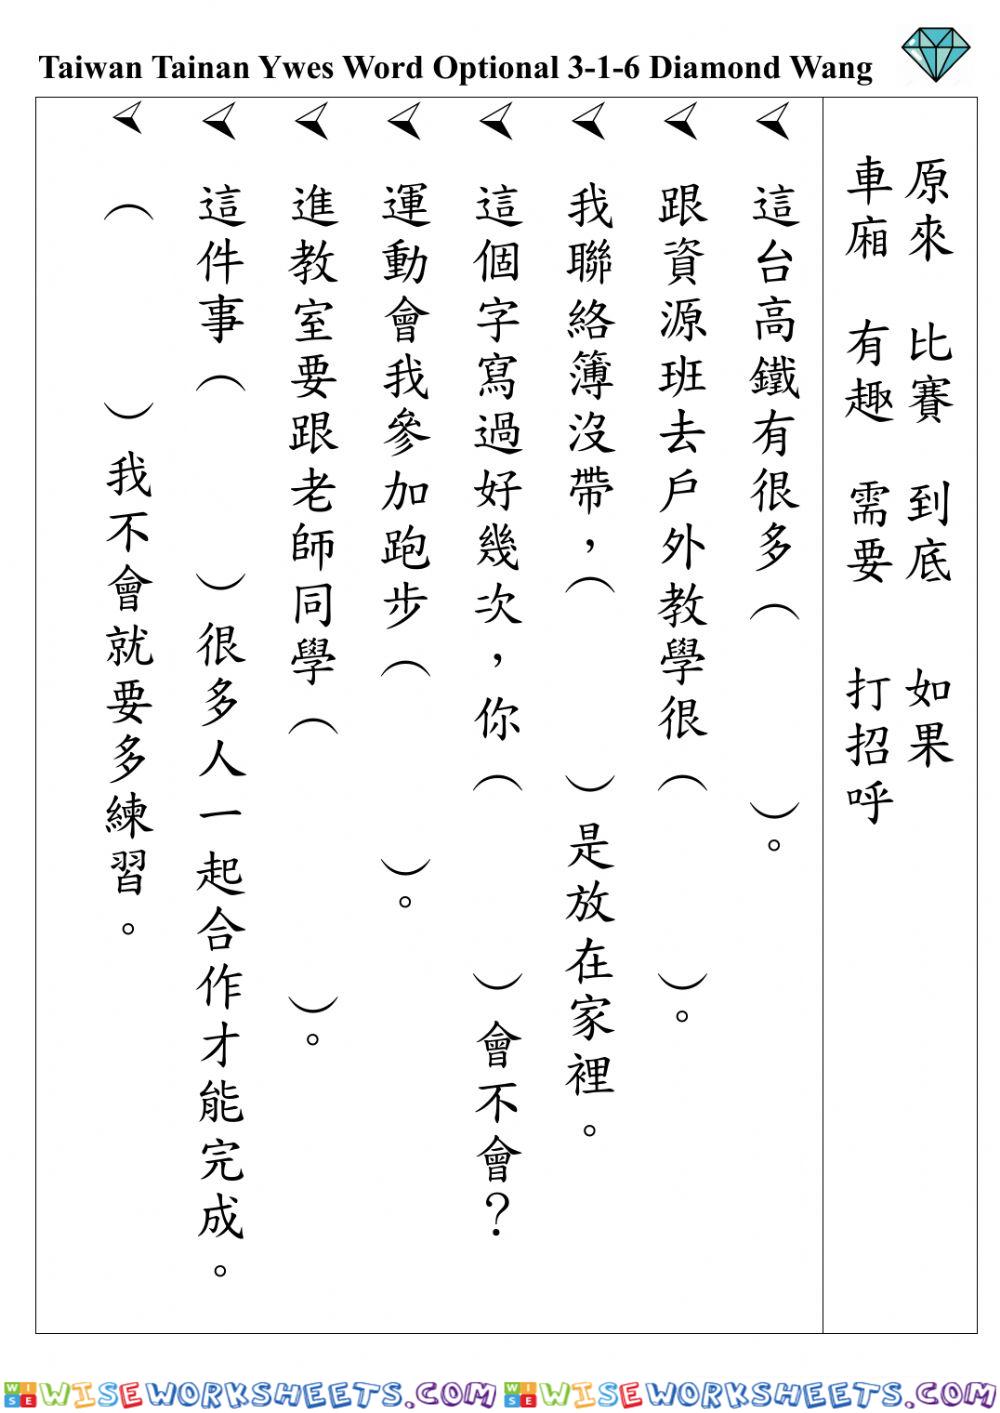 Taiwan Tainan Ywes Word Optional 3-1-6 Diamond Wang
原來 比賽 到底 如果
車廂 有趣 需要 打招呼
這台高鐵有很多（ ）。
跟資源班去戶外教學很（ ）。
我聯絡簿沒帶，（ ）是放在家裡。
這個字寫過好幾次，你（ ）會不會？
運動會我參加跑步（ ）。
進教室要跟老師同學（ ）。
這件事（ ）很多人一起合作才能完成。
（ ）我不會就要多練習。
WISE WISEWORKSHEETS.COM WISE WISEWORKSHEETS.COM